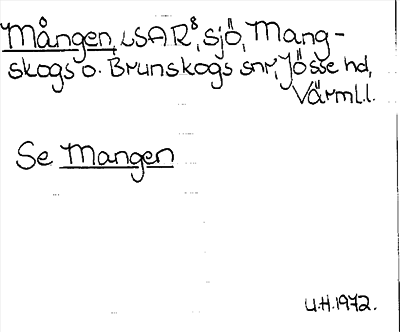 Mången, LSAR⁸, sjö, Mang-
skogs o. Brunskogs snr, Jösse hd,
Värml.l.
Se Mangen
U.H. 1972.